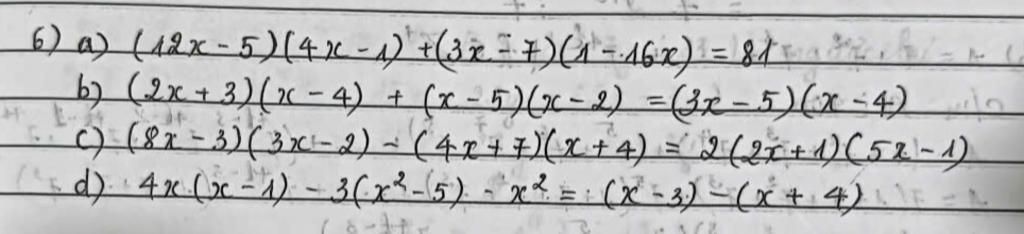 6) a) (12x - 5)(4x - 1) + (3x - 7)(1 - 16x) = 81
b) (2x + 3)(x - 4) + (x - 5)(x - 2) = (3x - 5)(x - 4)
c) (8x - 3)(3x - 2) - (4x + 7)(x + 4) = 2(2x + 1)(5x - 1)
d) 4x(x - 1) - 3(x² - 5) - x² = (x - 3) - (x + 4)